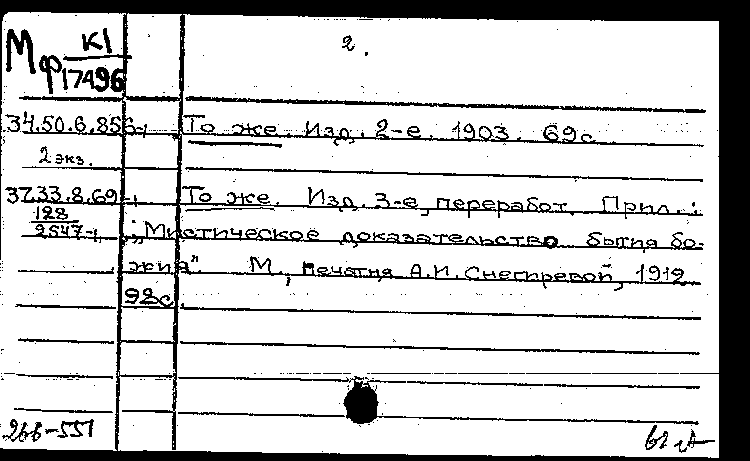 2.
Мф К1
17496
34.50.6.856-1 То же. Изд. 2-е. 1903. 69с.
2 экз.
37.33.8.69-1 То же. Изд. 3-е, переработ. Прил.:
128
2547-1 „Мистическое доказательство бытия бо-
жия". М., печатня А.И. Снегиревой, 1912
98с.
266-551